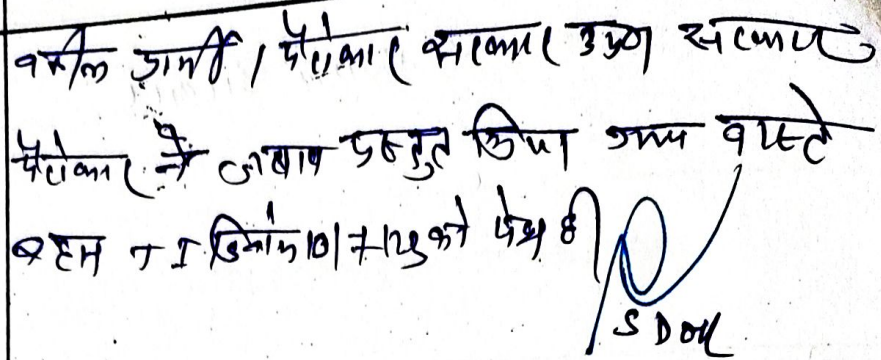 वकील प्रार्थी / पैरोकार सरकार उप० सरकार
पैरोकार ने जवाब प्रस्तुत किया अन्य वास्ते
बहस T I दिनांक 10/7/25 को पेश हो
S D O